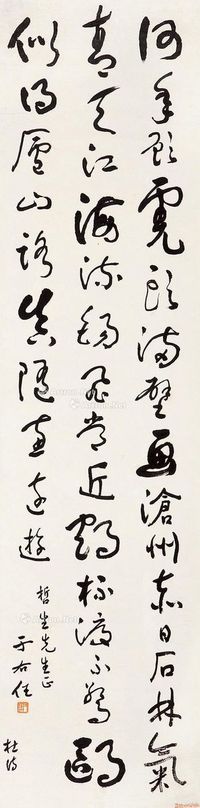 何年顧虎頭滿壁畫滄州赤日石林氣
青天江海流錫飛常近鶴杯渡不驚鷗
似得廬山路真隨惠遠遊
哲生先生正
于右任
杜詩